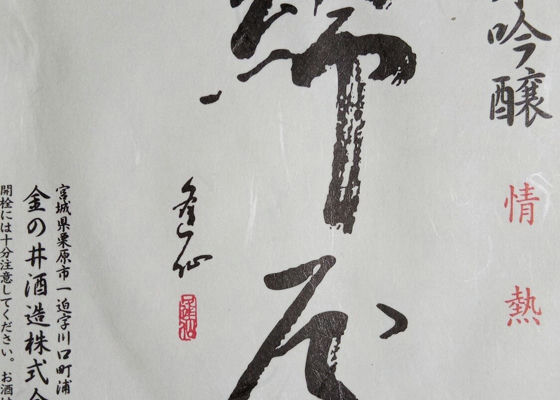 吟醸
情熱
綿屋
宮城県栗原市一迫字川口町浦
金の井酒造株式会
開栓には十分注意してください。お酒は